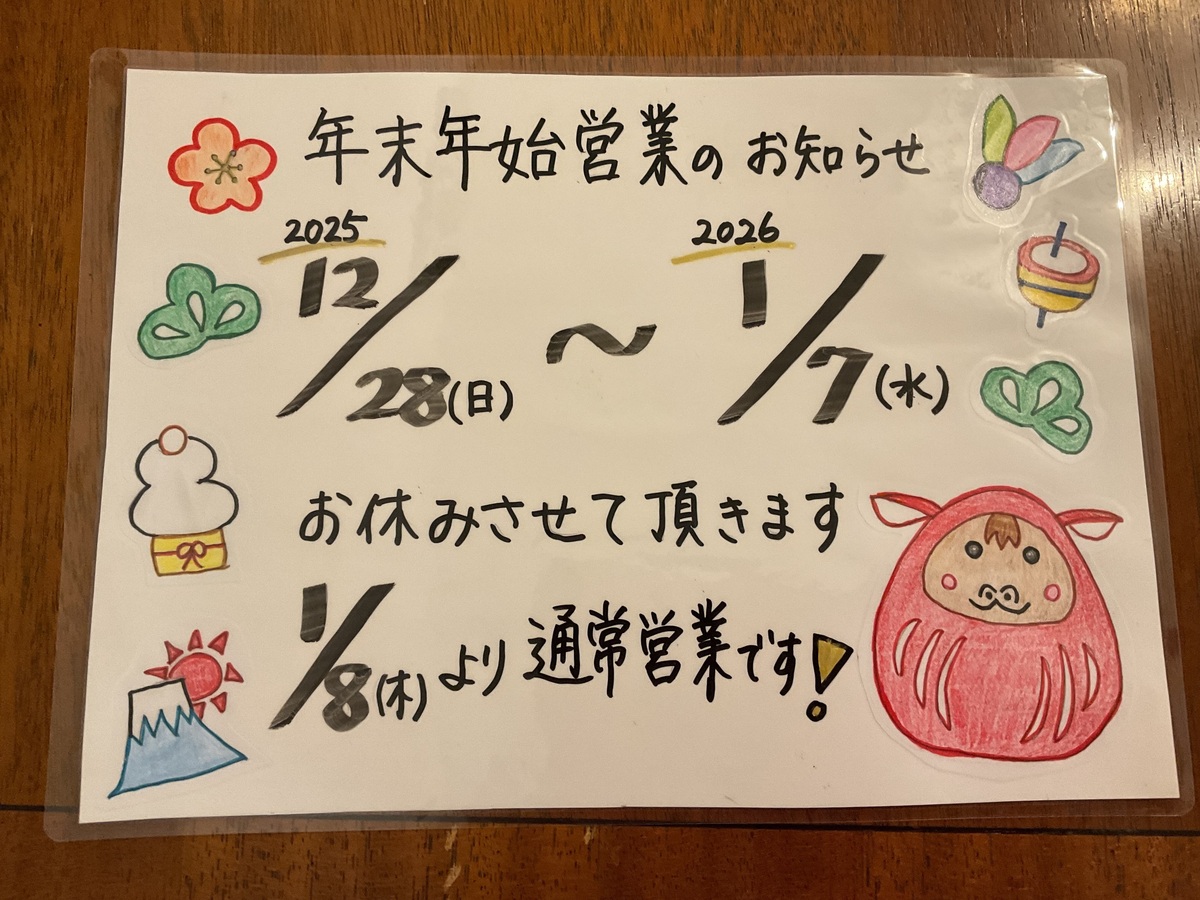 年末年始営業のお知らせ
2025 2026
12/28(日) 〜 1/7(水)
お休みさせて頂きます
1/8(木)より通常営業です!